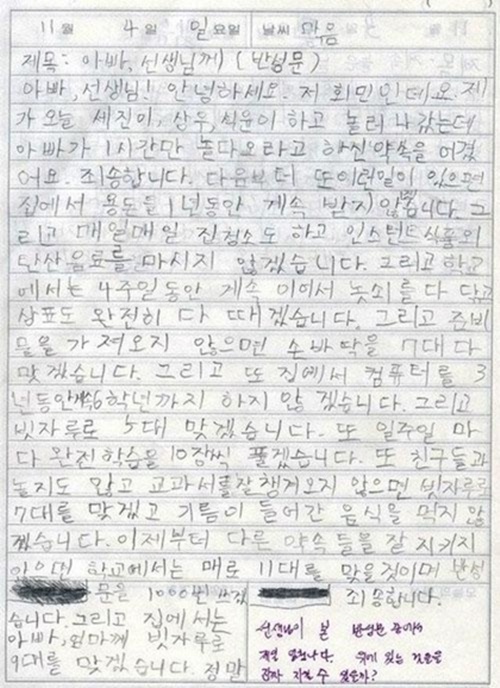 11월 4일 일요일 날씨 맑음
제목: 아빠, 선생님께 (반성문)
아빠, 선생님! 안녕하세요. 저 희민인데요. 제
가 오늘 세진이, 상우, 석윤이 하고 놀러 나갔는데
아빠가 1시간만 놀다오라고 하신 약속을 어겼
어요. 죄송합니다. 다음부터 또 이런일이 있으면
집에서 용돈을 1년동안 계속 받지 않겠습니다. 그
리고 매일매일 집청소도 하고 인스턴트식품외
탄산음료를 마시지 않겠습니다. 그리고 학교
에서는 4주일동안 계속 이어서 놋쇠를 다 닦고
상표도 완전히 다 떼겠습니다. 그리고 준비
물을 가져오지 않으면 손바닥을 7대 다
맞겠습니다. 그리고 또 집에서 컴퓨터를 3
년동안 6학년까지 하지 않겠습니다. 그리고
빗자루로 5대 맞겠습니다. 또 일주일 마
다 완전학습을 10장씩 풀겠습니다. 또 친구들과
놀지도 않고 교과서를 잘 챙겨오지 않으면 빗자루로
7대를 맞겠고 기름이 들어간 음식을 먹지 않
겠습니다. 이제부터 다른 약속들을 잘 지키지
않으면 학교에서는 매로 11대를 맞을것이며 반성
문을 1000번 쓰겠
습니다. 그리고 집에서는
아빠, 엄마께 빗자루로
9대를 맞겠습니다. 정말
죄송합니다.
선생님이 본 반성문 중에서
제일 . 여기 있는 것들을
지킬 수 있을까?